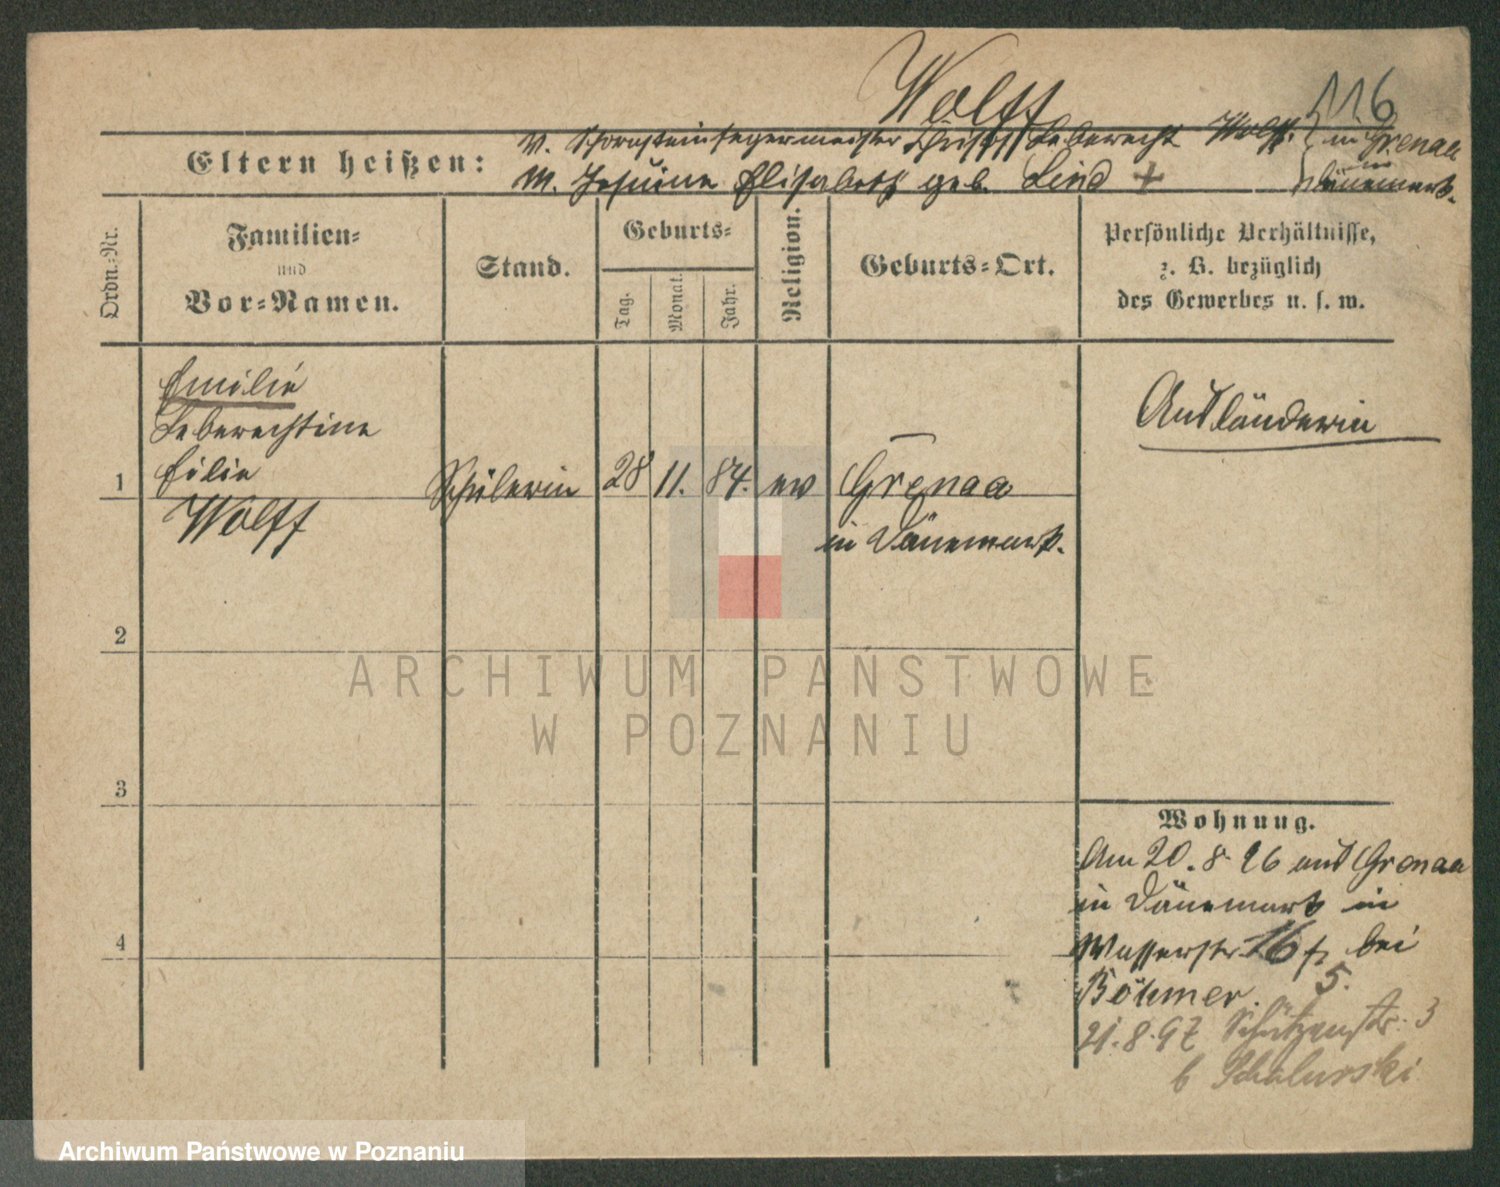 Wolff
116
Eltern heißen:
V. Schornsteinfegermeister Leberecht Wolff. } in Grenaa
M. Elisabeth geb. Lind + in Dänemark.
Ordn.-Nr.
Familien-
und
Vor-Namen.
Stand.
Geburts-
Tag.
Monat.
Jahr.
Religion.
Geburts-Ort.
Persönliche Verhältnisse,
z. B. bezüglich
des Gewerbes u. s. w.
Emilie
Leberechtine
Wolff
1
Schülerin
28
11.
84.
ev
Grenaa
in Dänemark.
Ausländerin
2
3
4
Wohnung.
Am 20. 8. 96 aus Grenaa
in Dänemark in
Wasserstr. 16 bei
Böhmer. 5.
21. 8. 97 Schützenstr. 3
b
ARCHIWUM PAŃSTWOWE
W POZNANIU
Archiwum Państwowe w Poznaniu